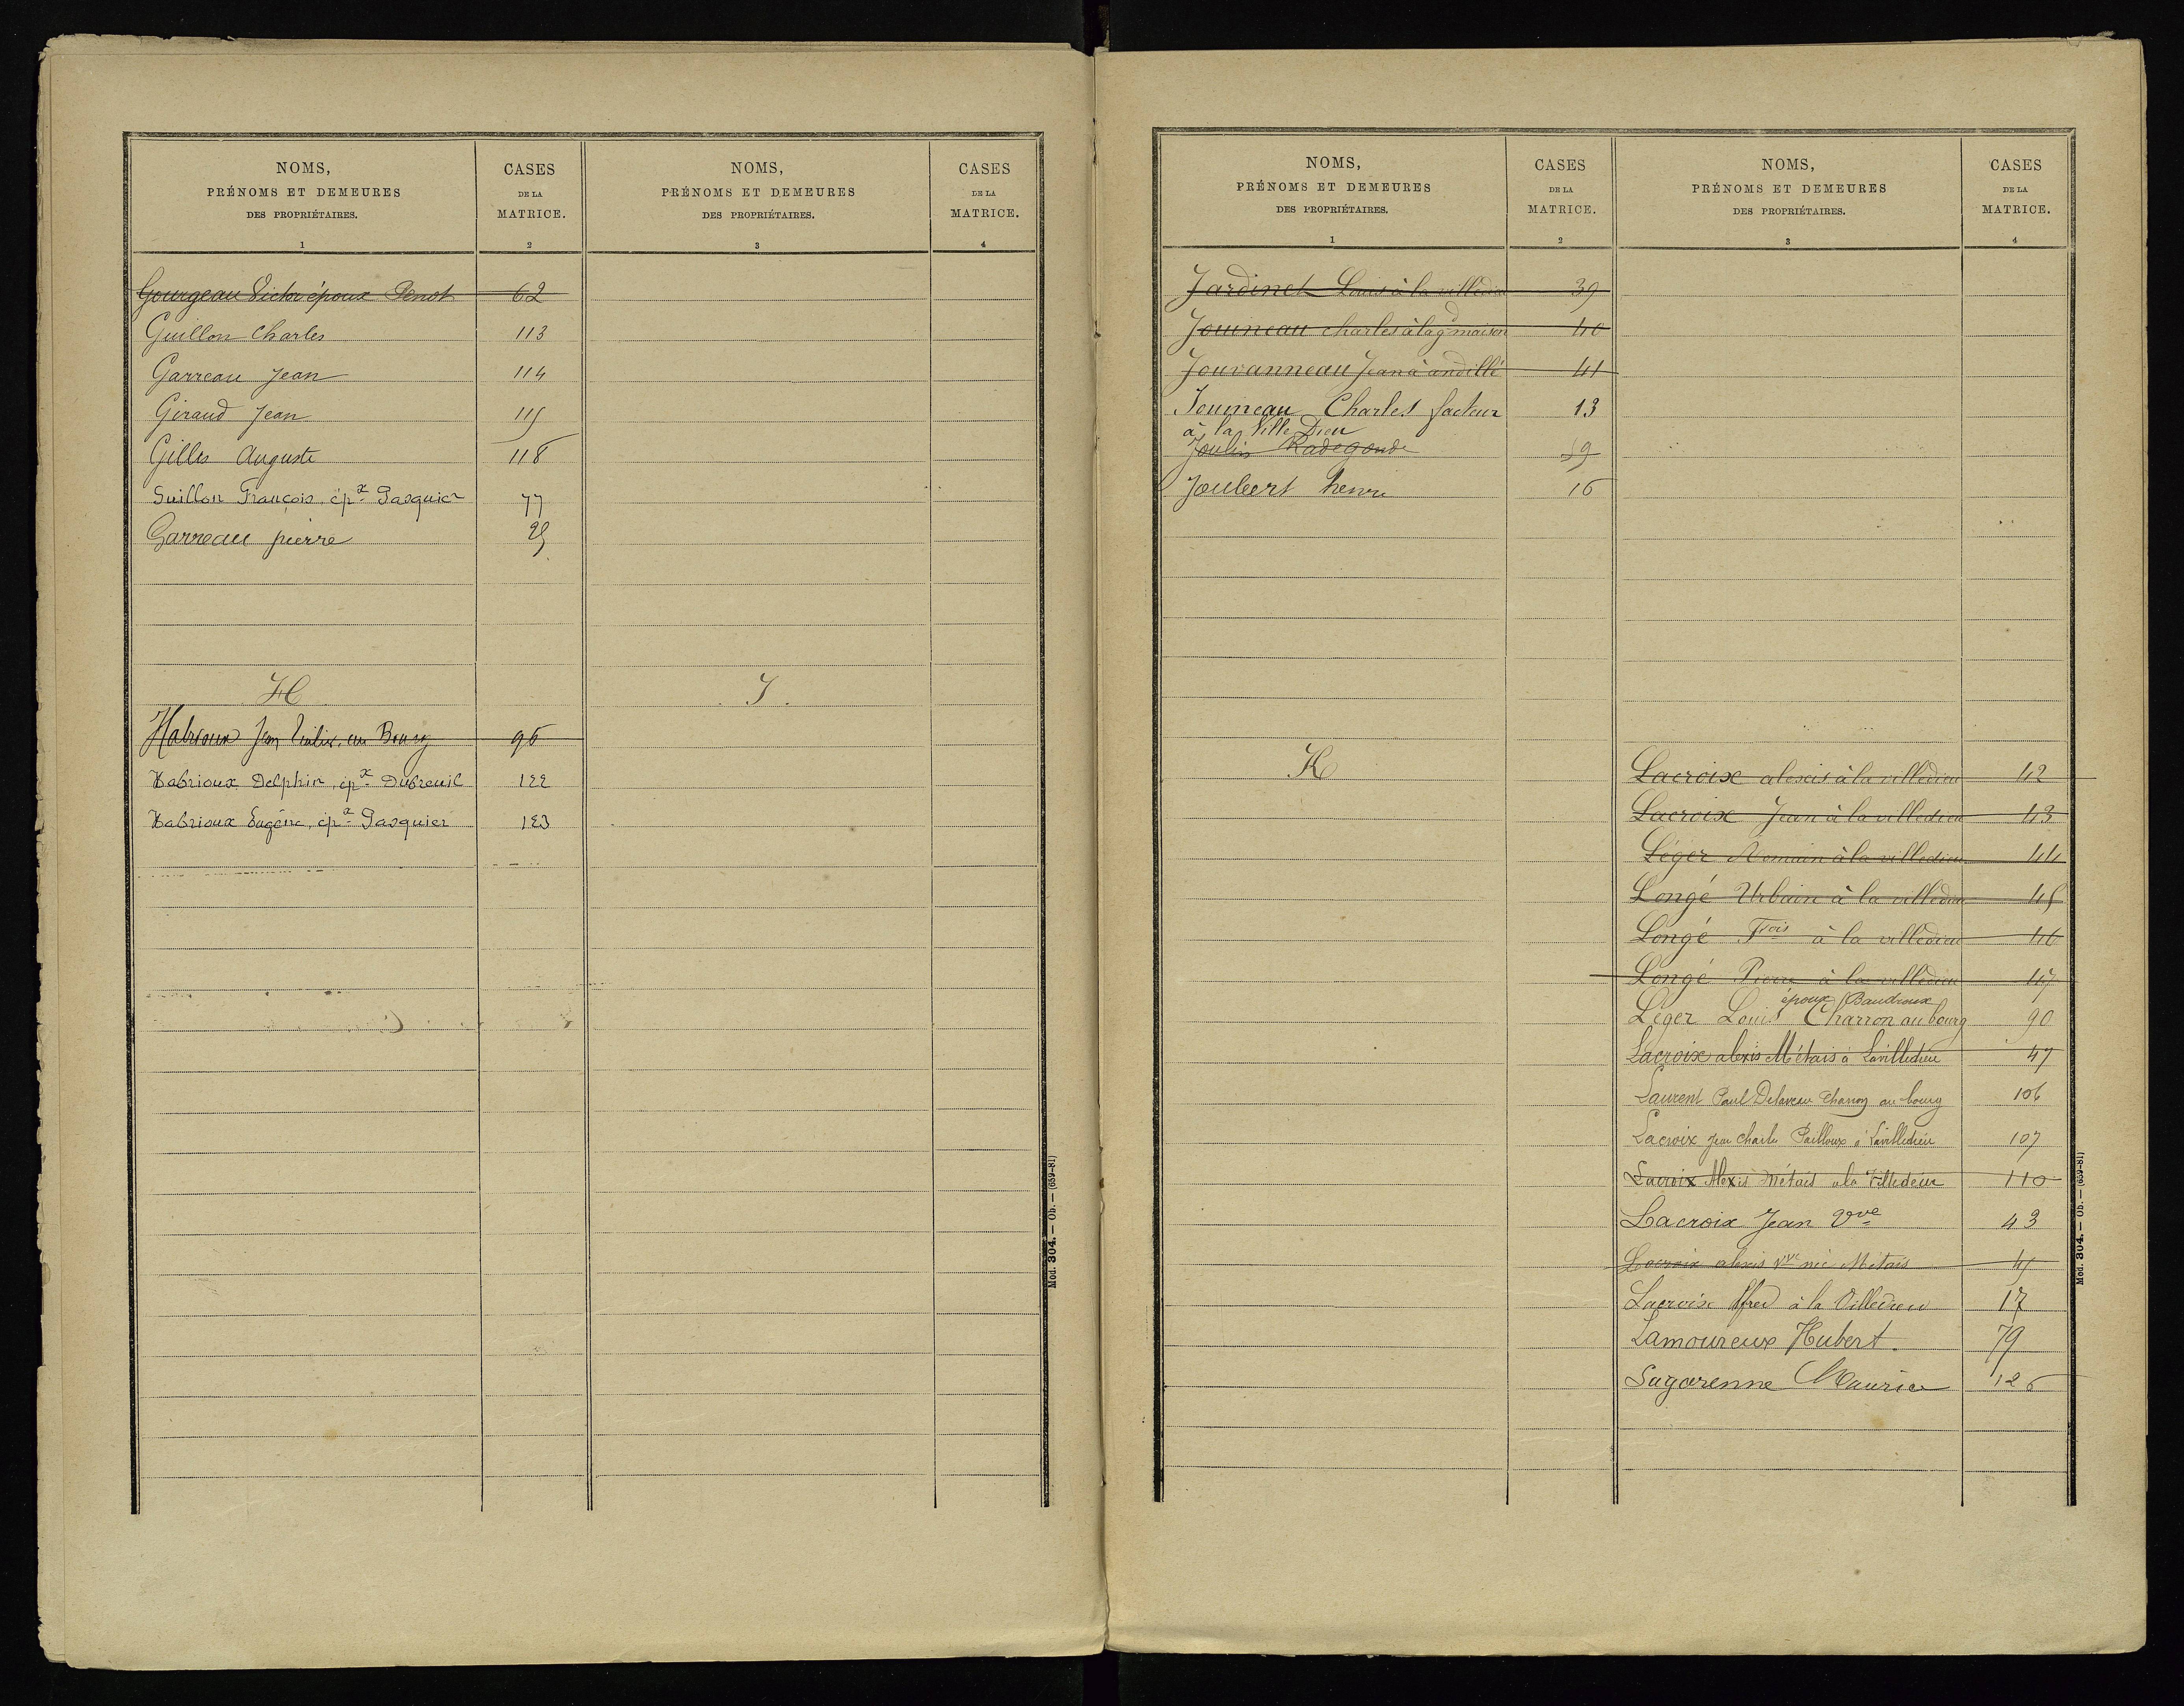 NOMS,
PRÉNOMS ET DEMEURES
DES PROPRIÉTAIRES.
1
CASES
DE LA
MATRICE.
2
NOMS,
PRÉNOMS ET DEMEURES
DES PROPRIÉTAIRES.
3
CASES
DE LA
MATRICE.
4
Gourgeau Victor époux Penot 62
Guillon Charles 113
Garreau Jean 114
Giraud Jean 115
Gilles Auguste 118
Guillon François, épx Pasquier 77
Garreau pierre 25
H
Habrioux Jean au Bourg 96
Habrioux Delphin, épx Dubreuil 122
Habrioux Eugène, épx Pasquier 123
I.
Mod. 304. — Ob. — (659-81)
NOMS,
PRÉNOMS ET DEMEURES
DES PROPRIÉTAIRES.
1
CASES
DE LA
MATRICE.
2
NOMS,
PRÉNOMS ET DEMEURES
DES PROPRIÉTAIRES.
3
CASES
DE LA
MATRICE.
4
Jardinet Louis à la villedieu 39
Jouineau charles à la gd maison 40
Jouvanneau Jean à andillé 41
Jouineau Charles facteur 13
à la Ville Dieu
Joulin Radegonde 59
Joubert henri 16
K
Lacroix alexis à la villedieu 42
Lacroix Jean à la villedieu 43
Léger Romain à la villedieu 44
Longé Urbain à la villedieu 45
Longé Fois à la villedieu 46
Longé Pierre à la villedieu 47
époux Baudroux
Léger Louis Charron au bourg 90
Lacroix alexis Métais à Lavilledieu 47
Laurent Paul Delaveau Charron au bourg 106
Lacroix Jean Charles Pailloux à Lavilledieu 107
Lacroix Alexis Métais a la Villedieu 110
Lacroix Jean Vve 43
Lacroix alexis Vve née Métais 45
Lacroix Alfred à la Villedieu 17
Lamoureux Hubert. 79
Lagarenne Maurice 126
Mod. 304. — Ob. — (659-81)